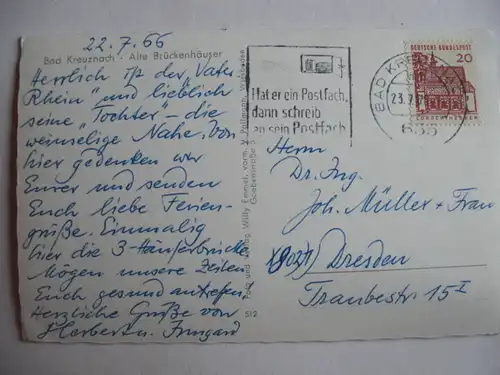 22.7.66
Bad Kreuznach - Alte Brückenhäuser
Herrlich ist der „Vater
Rhein" und lieblich
seine „Tochter" – die
weinselige Nahe. Von
hier gedenken wir
Eurer und senden
Euch liebe Ferien-
grüße. Einmalig
hier die 3-Häuserbrücke
Mögen unsere Zeilen
Euch gesund antreffen.
Herzliche Grüße von
Herbert u. Irmgard
Foto und Verlag Willy Emmel, vorm. Wiesbaden
512
Hat er ein Postfach,
dann schreib
an sein Postfach
BAD KREUZ
23.7.
655
DEUTSCHE BUNDESPOST
20
LORSCH/HESSEN
Herrn
Dr. Ing.
Joh. Müller + Frau
X8027 Dresden
Traubestr. 15 I